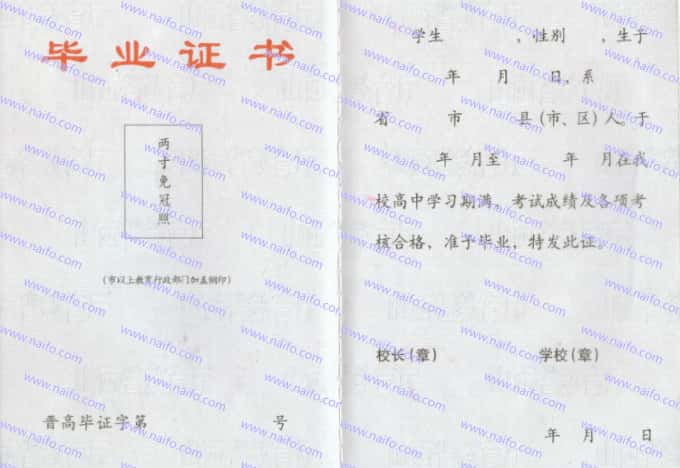 毕业证书
两寸免冠照
(市以上教育行政部门加盖钢印)
晋高毕证字第 号
学生 ，性别 ，生于
年 月 日，系
省 市 县(市、区)人。于
年 月至 年 月在我
校高中学习期满，考试成绩及各项考
核合格，准予毕业，特发此证。
校长(章) 学校(章)
年 月 日
www.naifo.com